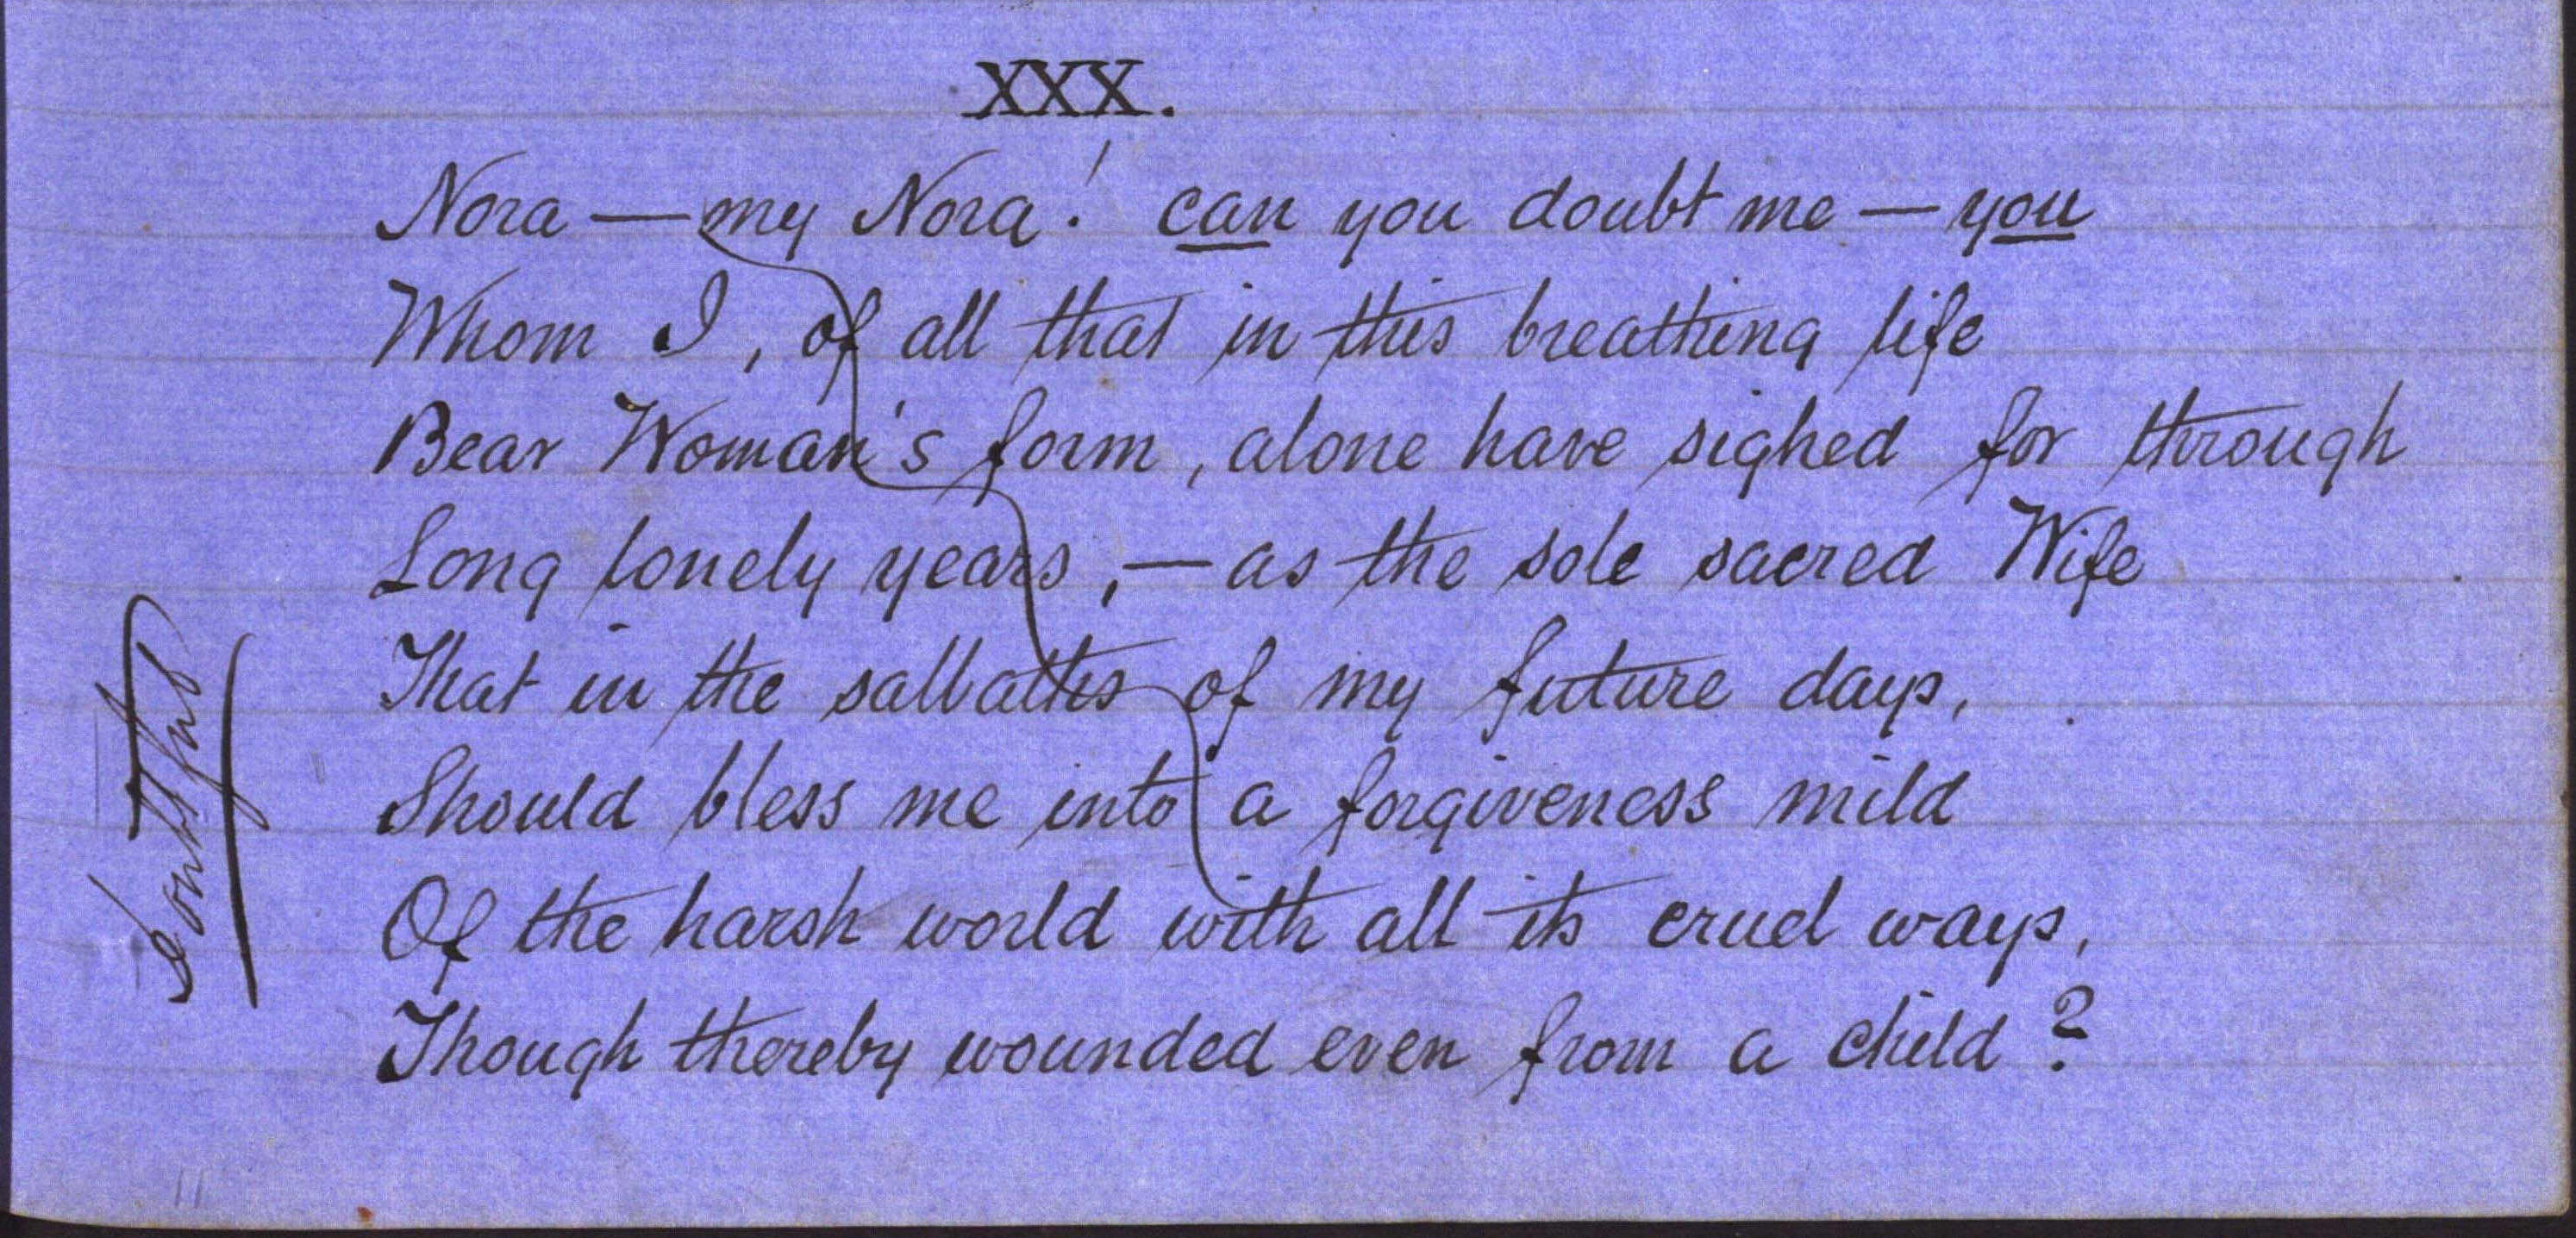 XXX.
Nora — my Nora! can you doubt me — you
Whom I, of all that in this breathing life
Bear Woman's form, alone have sighed for through
Long lonely years, — as the sole sacred Wife
That in the sabbaths of my future days,
Should bless me into a forgiveness mild
Of the harsh world with all its cruel ways,
Though thereby wounded even from a child?
doubtful